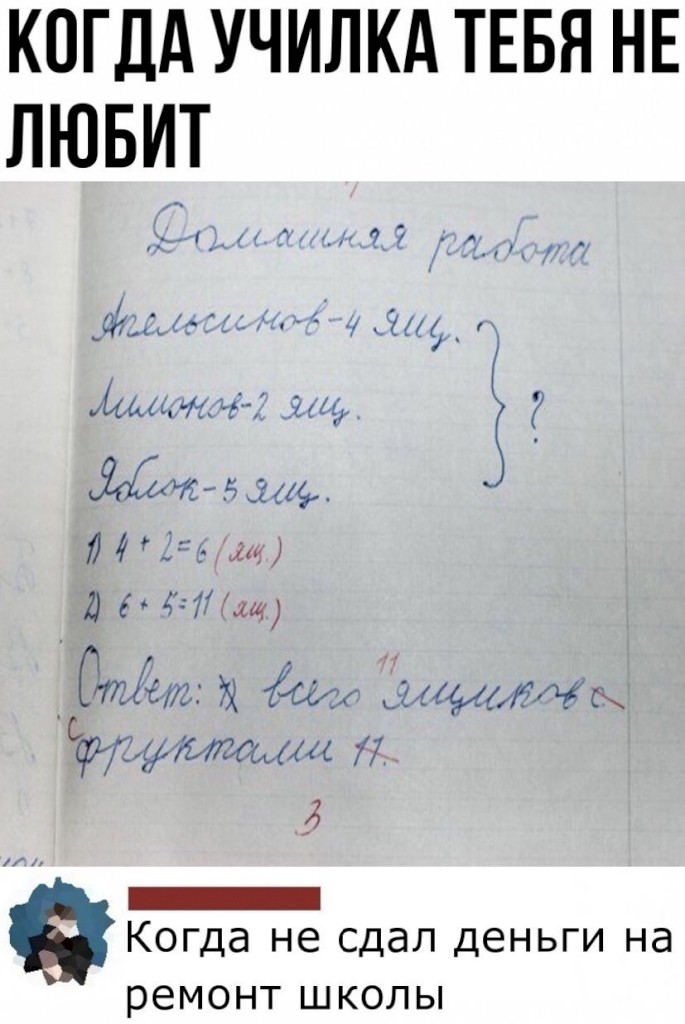 КОГДА УЧИЛКА ТЕБЯ НЕ
ЛЮБИТ
Домашняя работа
Апельсинов-4 ящ.
Лимонов-2 ящ.
?
Яблок-5 ящ.
1) 4 + 2=6 (ящ.)
2) 6 + 5=11 (ящ.)
11
Ответ: всего ящиков с
с фруктами 11.
3
Когда не сдал деньги на
ремонт школы